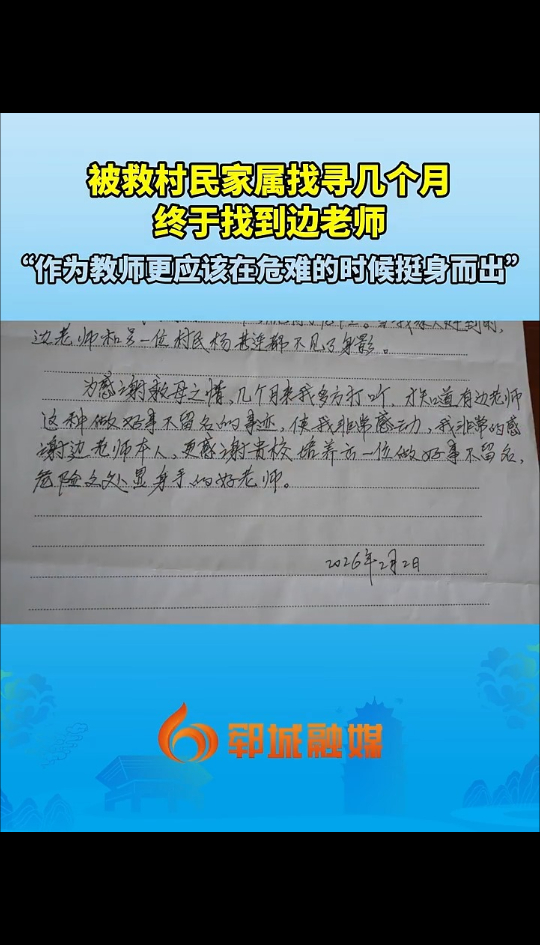 被救村民家属找寻几个月
终于找到边老师
“作为教师更应该在危难的时候挺身而出”
边老师和另一位村民杨
都不见了身影。
为感谢救母之情,几个月来我多方打听,才知道有边老师
这种做好事不留名的事迹,使我非常感动,我非常的感
谢边老师本人,更感谢贵校培养出一位做好事不留名,
危险之处显身手的好老师。
2026年2月2日
郓城融媒